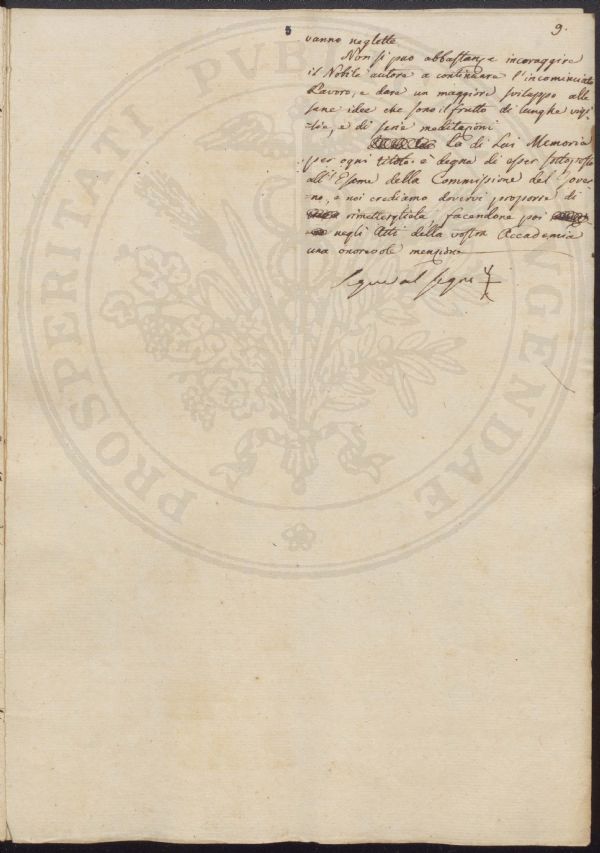 9.
vanno neglette
Non si può abbastanza incoraggire
il Nobile autore a continuare l'incominciato
Lavoro, e dare un maggiore sviluppo alle
sane idee che sono il frutto di lunghe vigi
=lie, e di serie meditazioni
La di Lui Memoria
per ogni titolo è degna di esser sottoposta
all'Esame della Commissione del Gover
=no, e noi crediamo dovervi proporre di
rimettergliela, facendone poi
negli Atti della vostra Accademia
una onorevole menzione
Segue al segno
PROSPERITATI PVB AVGENDAE